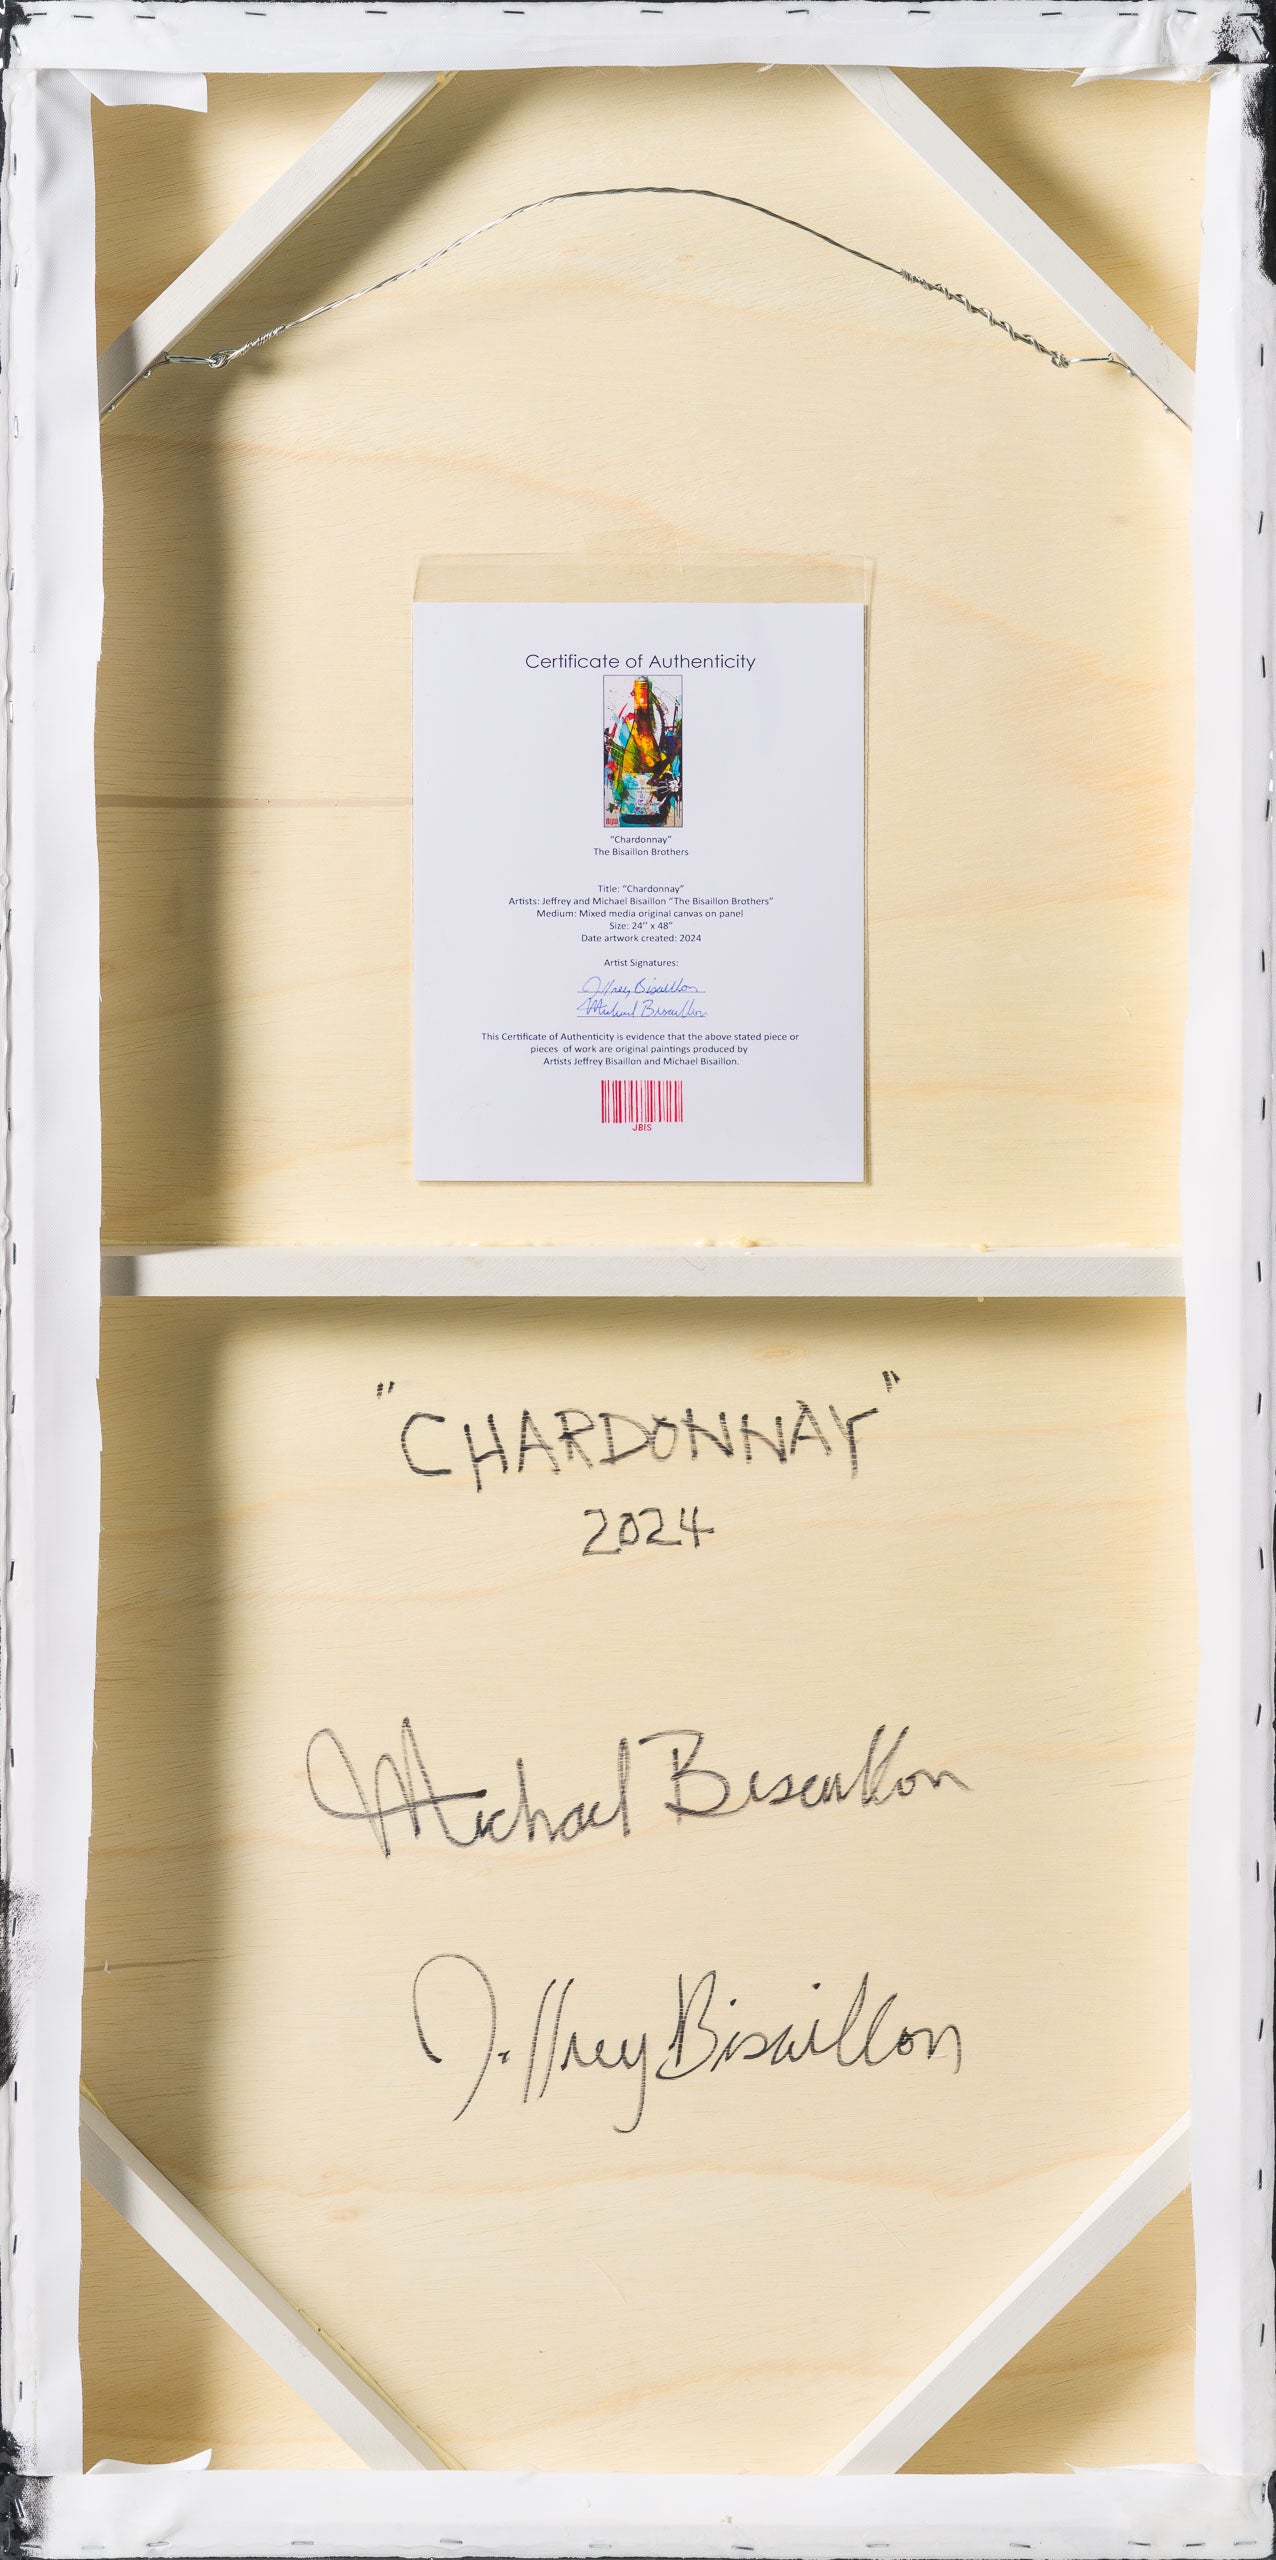 Certificate of Authenticity
“Chardonnay”
The Bisaillon Brothers
Title: “Chardonnay”
Artists: Jeffrey and Michael Bisaillon “The Bisaillon Brothers”
Medium: Mixed media original canvas on panel
Size: 24’’ x 48”
Date artwork created: 2024
Artist Signatures:
Jeffrey Bisaillon
Michael Bisaillon
This Certificate of Authenticity is evidence that the above stated piece or
pieces of work are original paintings produced by
Artists Jeffrey Bisaillon and Michael Bisaillon.
JBIS
"CHARDONNAY"
2024
Michael Bisaillon
Jeffrey Bisaillon